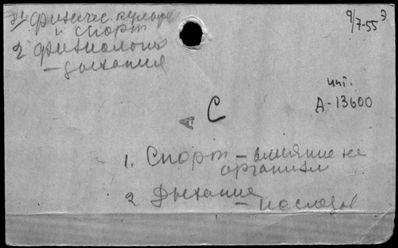 1) Физичес культура
и спорт
2 Физиология
– дыхания
9/7-55
инв.
А-13600
А С
1. Спорт – влияние на
организм
2 Дыхание
–